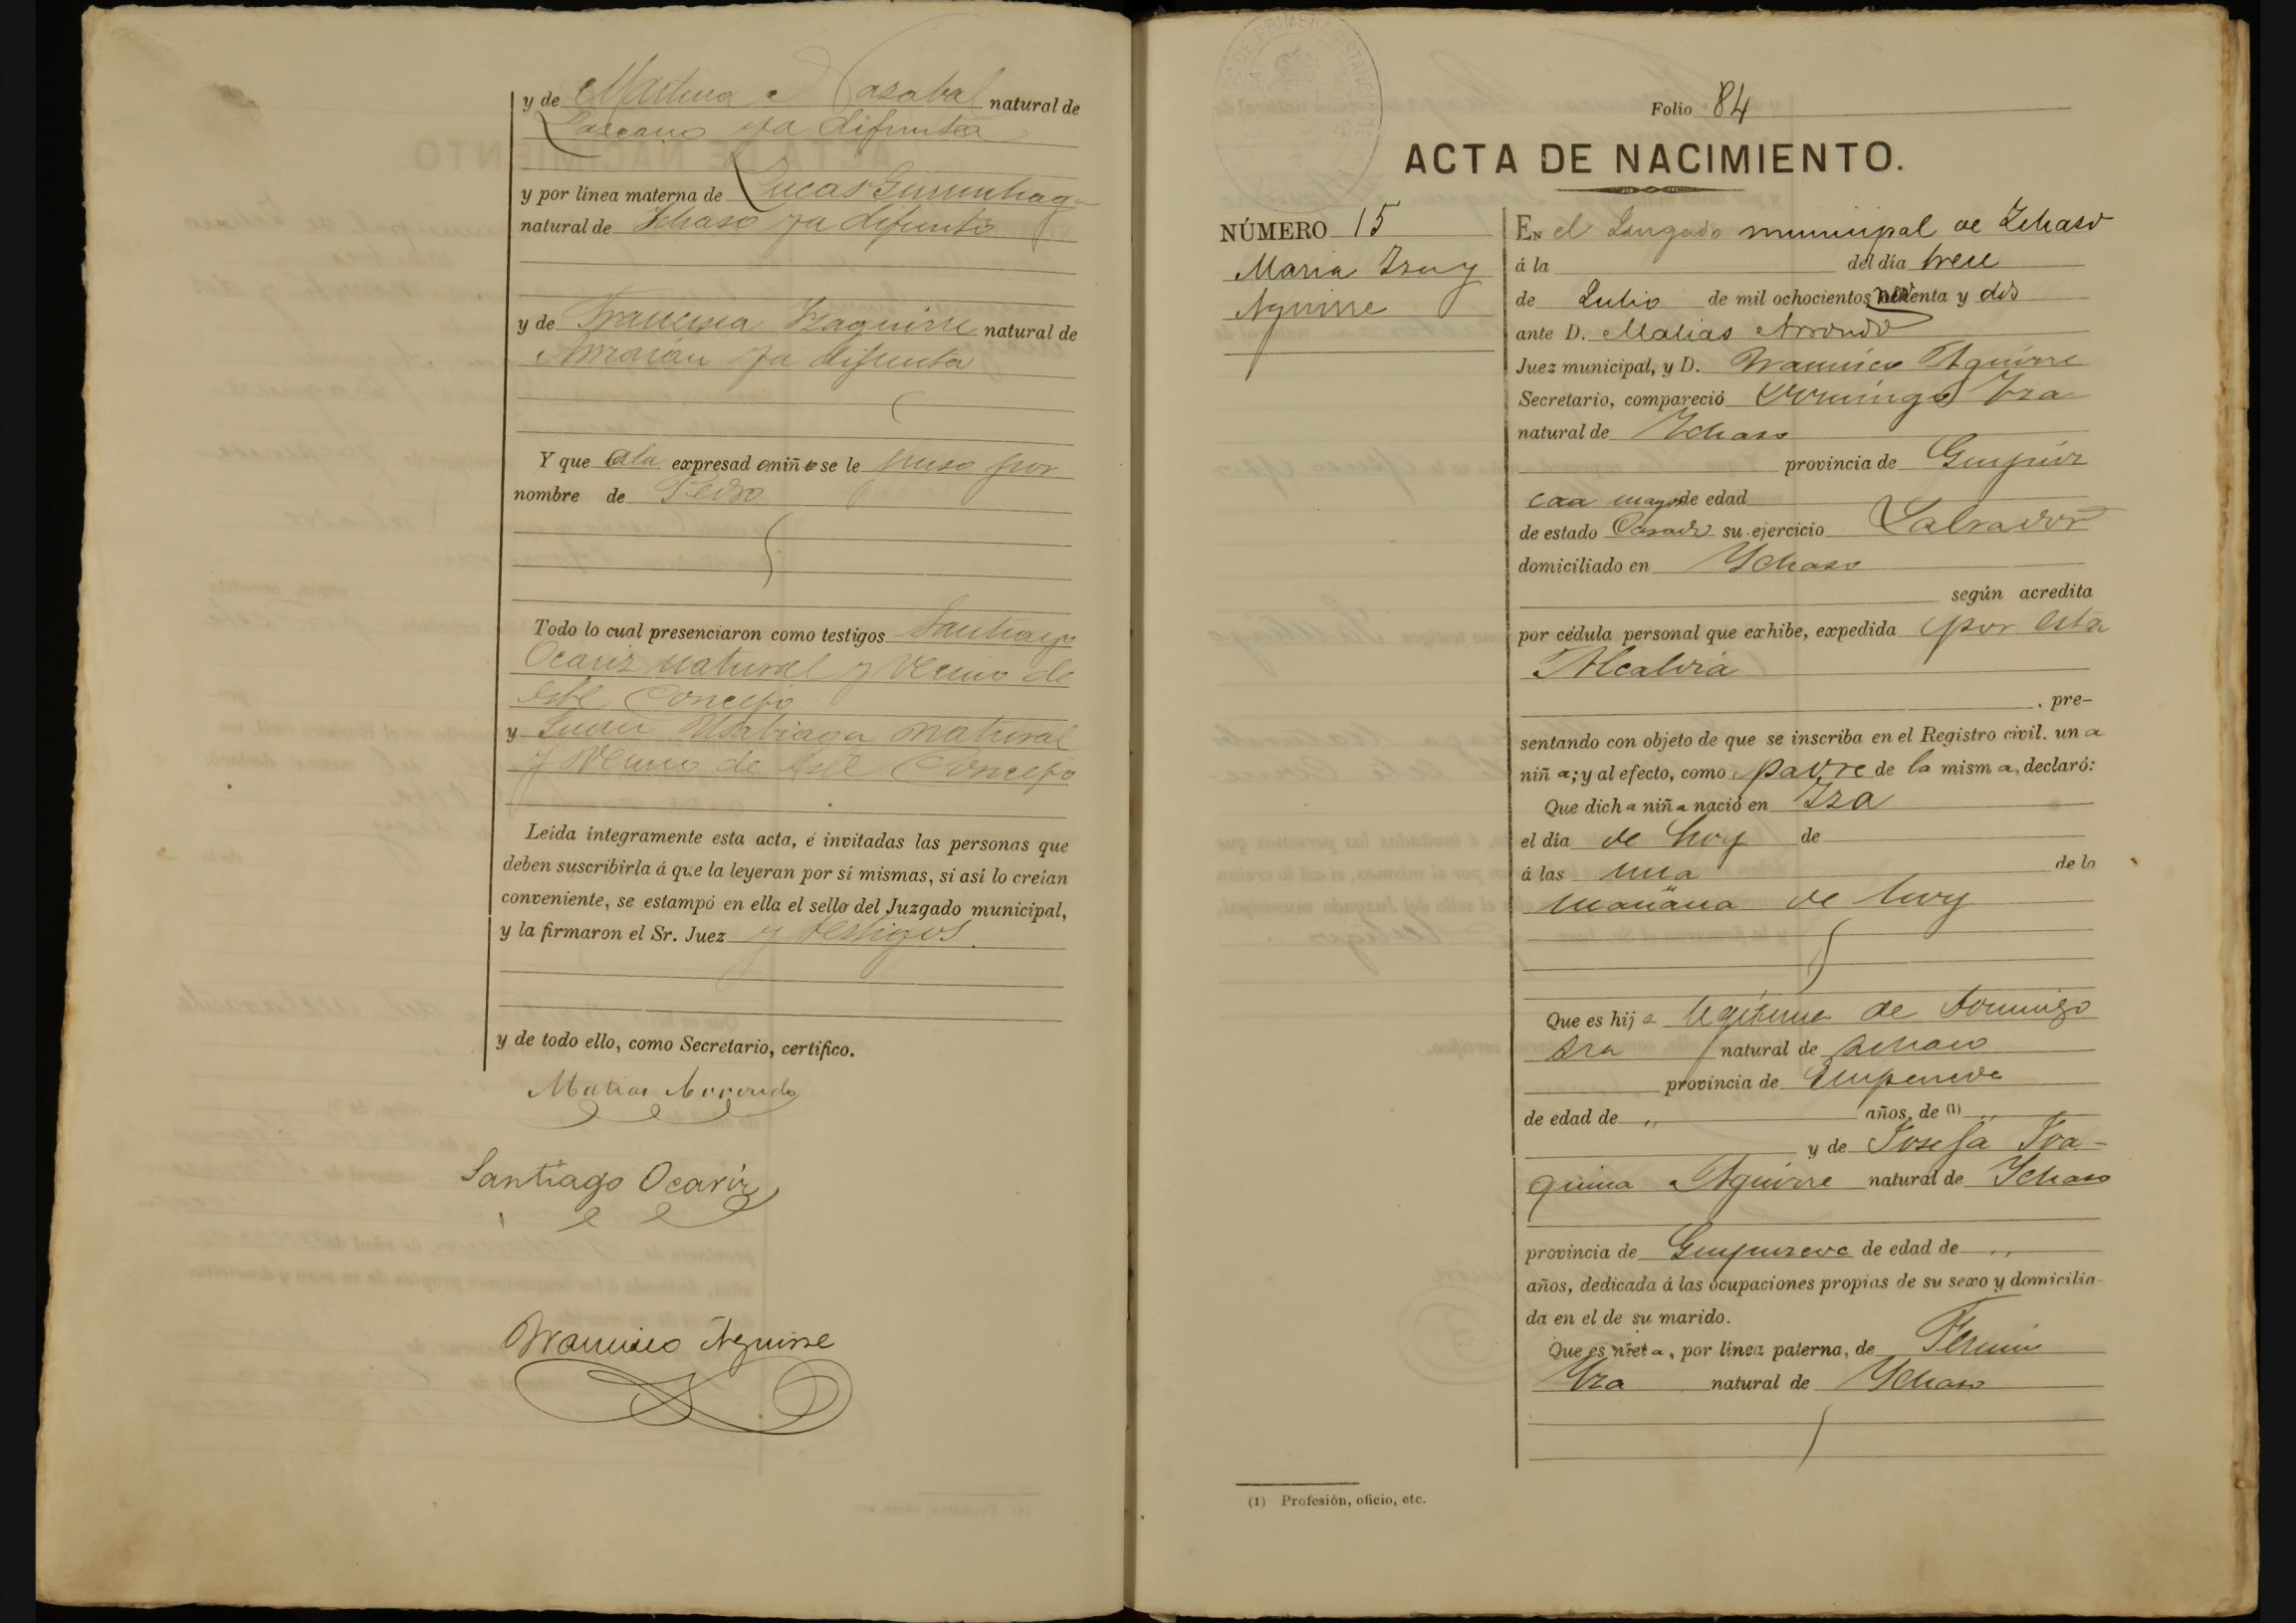 y de Martina Nasabal natural de
Lascano ya difunta
y por linea materna de Lucas Gurruchaga
natural de Ichaso ya difunto
y de Francisca Yzaguirre natural de
Amasán ya difunta
Y que expresad o niño se le puso por
nombre de Pedro
Todo lo cual presenciaron como testigos Santiago
Ocariz natural y vecino de
este Concejo
y Juan Usabiaga natural
y vecino de este Concejo
Leida íntegramente esta acta, é invitadas las personas que
deben suscribirla á que la leyeran por sí mismas, si así lo creían
conveniente, se estampó en ella el sello del Juzgado municipal,
y la firmaron el Sr. Juez y testigos.
y de todo ello, como Secretario, certifico.
Matias Arrondo
Santiago Ocariz
Francisco Aguirre
Folio 84
ACTA DE NACIMIENTO.
NÚMERO 15
Maria Iza y
Aguirre
EN el Juzgado municipal de Ichaso
á la del día trece
de Julio de mil ochocientos noventa y dos
ante D. Matias Arrondo
Juez municipal, y D. Francisco Aguirre
Secretario, compareció Domingo Yza
natural de Ychaso
provincia de Guipúz
coa mayor de edad
de estado Casado su ejercicio Labrador
domiciliado en Ychaso
según acredita
por cédula personal que exhibe, expedida por esta
Alcaldia
, pre-
sentando con objeto de que se inscriba en el Registro civil, un a
niñ a; y al efecto, como padre de la mism a, declaró:
Que dich a niñ a nació en Iza
el día de hoy de
á las una de la
mañana de hoy
Que es hij a legitima de Domingo
Iza natural de Ichaso
provincia de Guipuzcoa
de edad de ,, años, de (1) ,,
y de Josefa Joa-
quina Aguirre natural de Ychaso
provincia de Guipuzcoa de edad de ,,
años, dedicada á las ocupaciones propias de su sexo y domicilia-
da en el de su marido.
Que es niet a, por linea paterna, de Fermin
Yza natural de Ychaso
(1) Profesión, oficio, etc.